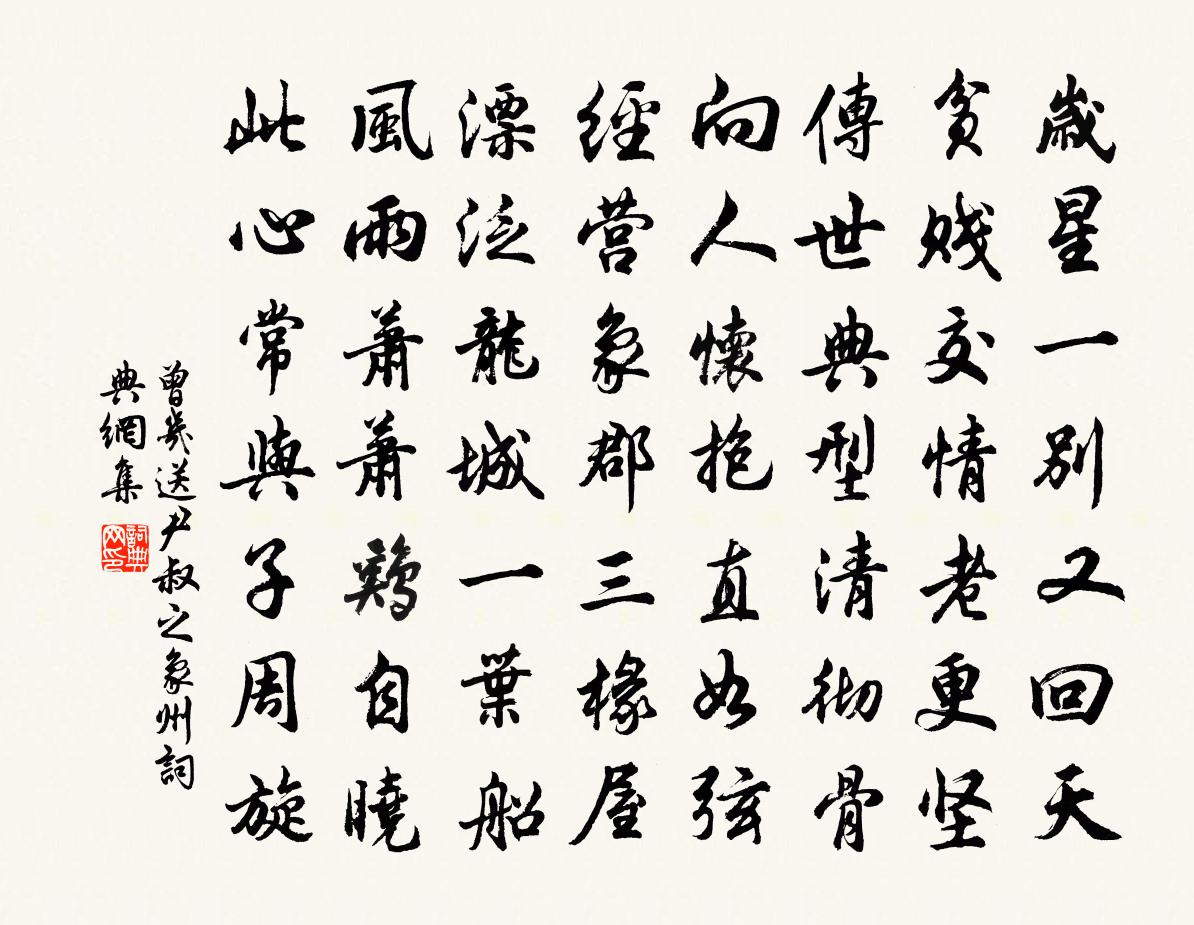 歲星一別又回天
貧賤交情老更坚
傳世典型清彻骨
向人懷抱直如弦
經营象郡三椽屋
漂泛龍城一葉船
風雨蕭蕭鷄自曉
此心常與子周旋
曾幾送尹叔之象州詞
典網集
詞典
网印